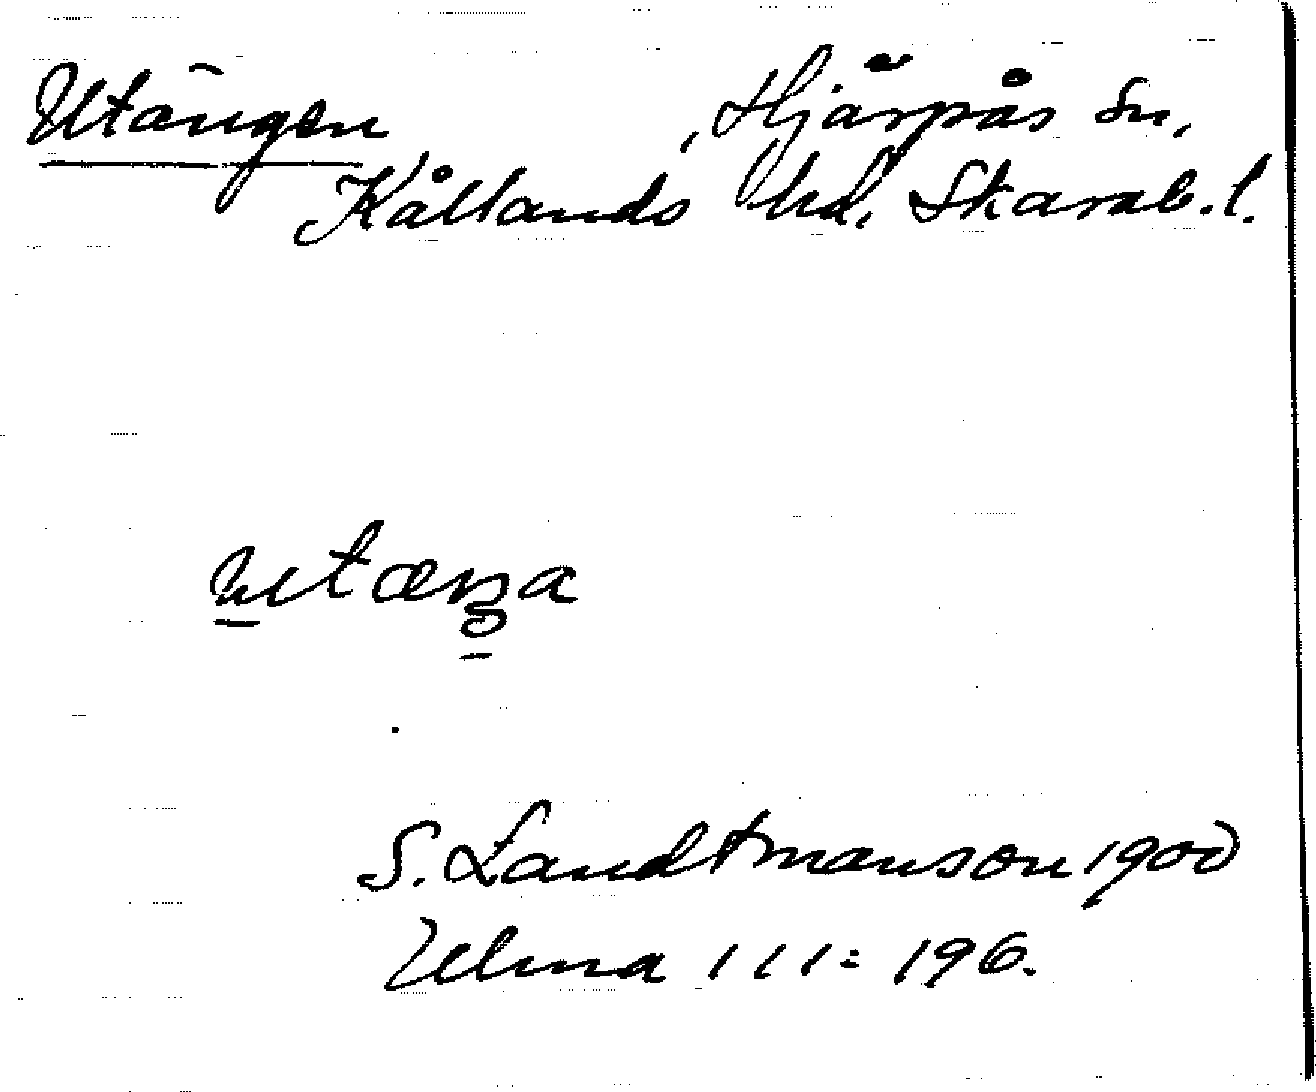 Utängen, Hjärpås sn,
Kållands hd. Skarab. l.
utæŋa
S. Landtmanson 1900
Ulma 111: 196.